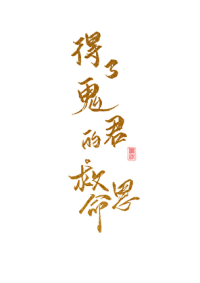 得了鬼君的救命恩